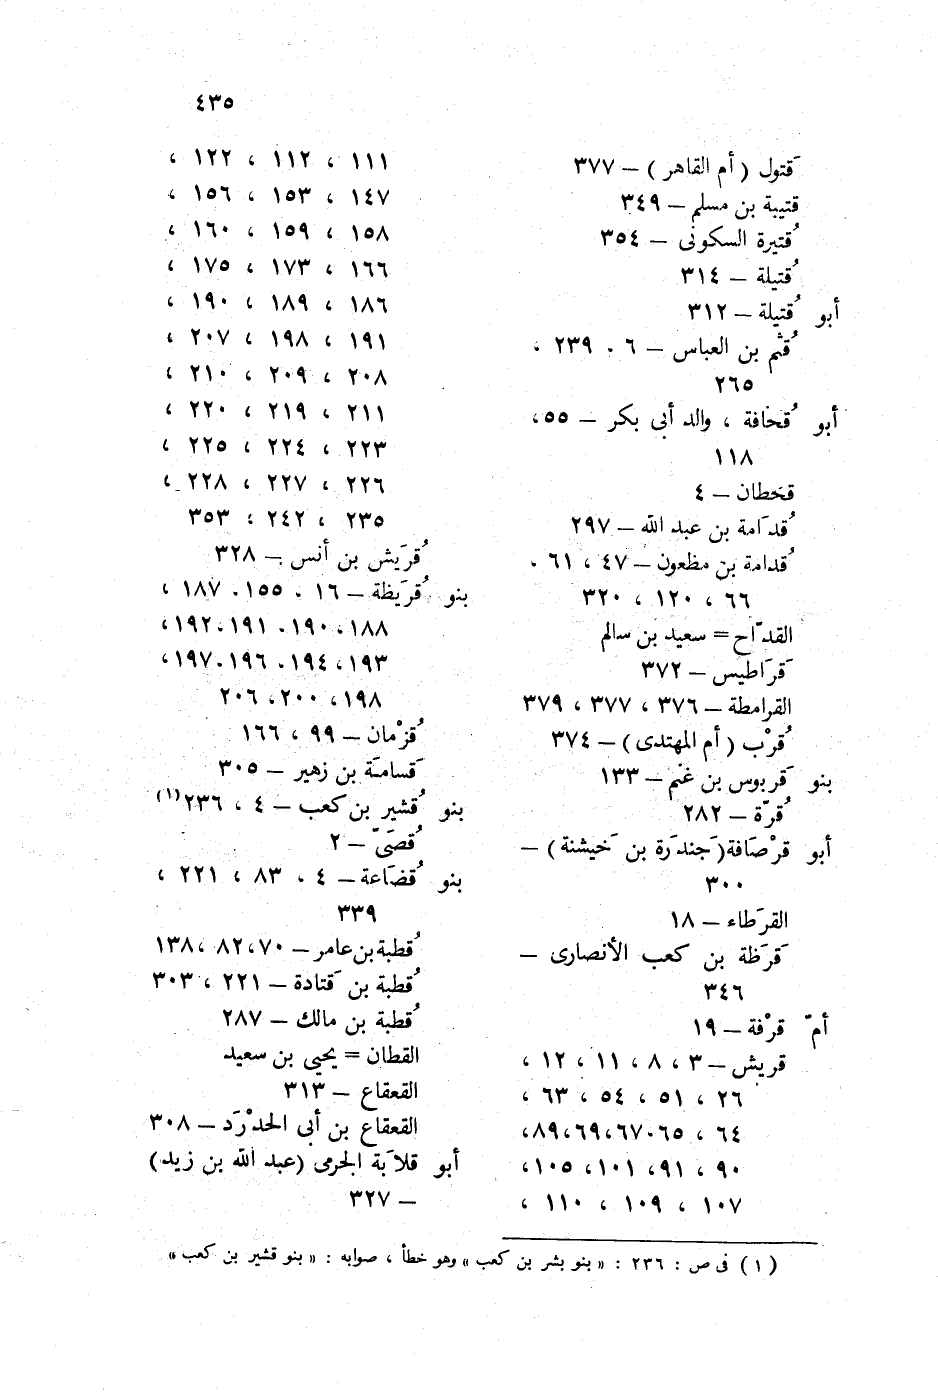 ٤٣٥
قَتول ( أم القاهر ) — ٣٧٧
قتيبة بن مسلم — ٣٤٩
قُتيرة السكونى — ٣٥٤
قُتيلة — ٣١٤
أبو قُتيلة — ٣١٢
قُثم بن العباس — ٦ ، ٢٣٩ ،
٢٦٥
أبو قُحافة ، والد أبى بكر — ٥٥،
١١٨
قحطان — ٤
قُدَامة بن عبد الله — ٢٩٧
قُدامة بن مظعون — ٤٧ ، ٦١ ،
٦٦ ، ١٢٠ ، ٣٢٠
القدّاح = سعيد بن سالم
قَرَاطيس — ٣٧٢
القرامطة — ٣٧٦ ، ٣٧٧ ، ٣٧٩
قُرْب ( أم المهتدى ) — ٣٧٤
بنو قَربوس بن غنم — ١٣٣
قُرّة — ٢٨٢
أبو قرْصَافة(جَندَرة بن خَيشنة ) —
٣٠٠
القرَطاء — ١٨
قَرَظة بن كعب الأنصارى —
٣٤٦
أمّ قرْفة — ١٩
قريش — ٣ ، ٨ ، ١١ ، ١٢ ،
٢٦ ، ٥١ ، ٥٤ ، ٦٣ ،
٦٤ ، ٦٥، ٦٧،٦٩،٨٩،
٩٠ ، ٩١، ١٠١، ١٠٥،
١٠٧ ، ١٠٩ ، ١١٠ ،
١١١ ، ١١٢ ، ١٢٢ ،
١٤٧ ، ١٥٣ ، ١٥٦ ،
١٥٨ ، ١٥٩ ، ١٦٠ ،
١٦٦ ، ١٧٣ ، ١٧٥ ،
١٨٦ ، ١٨٩ ، ١٩٠ ،
١٩١ ، ١٩٨ ، ٢٠٧ ،
٢٠٨ ، ٢٠٩ ، ٢١٠ ،
٢١١ ، ٢١٩ ، ٢٢٠ ،
٢٢٣ ، ٢٢٤ ، ٢٢٥ ،
٢٢٦ ، ٢٢٧ ، ٢٢٨ ،
٢٣٥ ، ٢٤٢ ، ٣٥٣
قُريَش بن أنس — ٣٢٨
بنو قُريَظة — ١٦ ، ١٥٥، ١٨٧ ،
١٨٨، ١٩٠، ١٩١،١٩٢،
١٩٣، ١٩٤، ١٩٦،١٩٧،
١٩٨، ٢٠٠، ٢٠٦
قُزْمان — ٩٩ ، ١٦٦
قَسامَة بن زهير — ٣٠٥
بنو قُشير بن كعب — ٤ ، ٢٣٦(١)
قُصَىّ — ٢
بنو قُضَاعة — ٤ ، ٨٣ ، ٢٢١ ،
٣٣٩
قُطبة بن عامر — ٧٠، ٨٢، ١٣٨
قُطبة بن قَتادة — ٢٢١ ، ٣٠٣
قُطبة بن مالك — ٢٨٧
القطان = يحيى بن سعيد
القعقاع — ٣١٣
القعقاع بن أبى الحدْرَد — ٣٠٨
أبو قلاَبة الجرمى (عبد الله بن زيد)
— ٣٢٧
( ١ ) فى ص : ٢٣٦ : « بنو بشر بن كعب » وهو خطأ ، صوابه : « بنو قشير بن كعب »